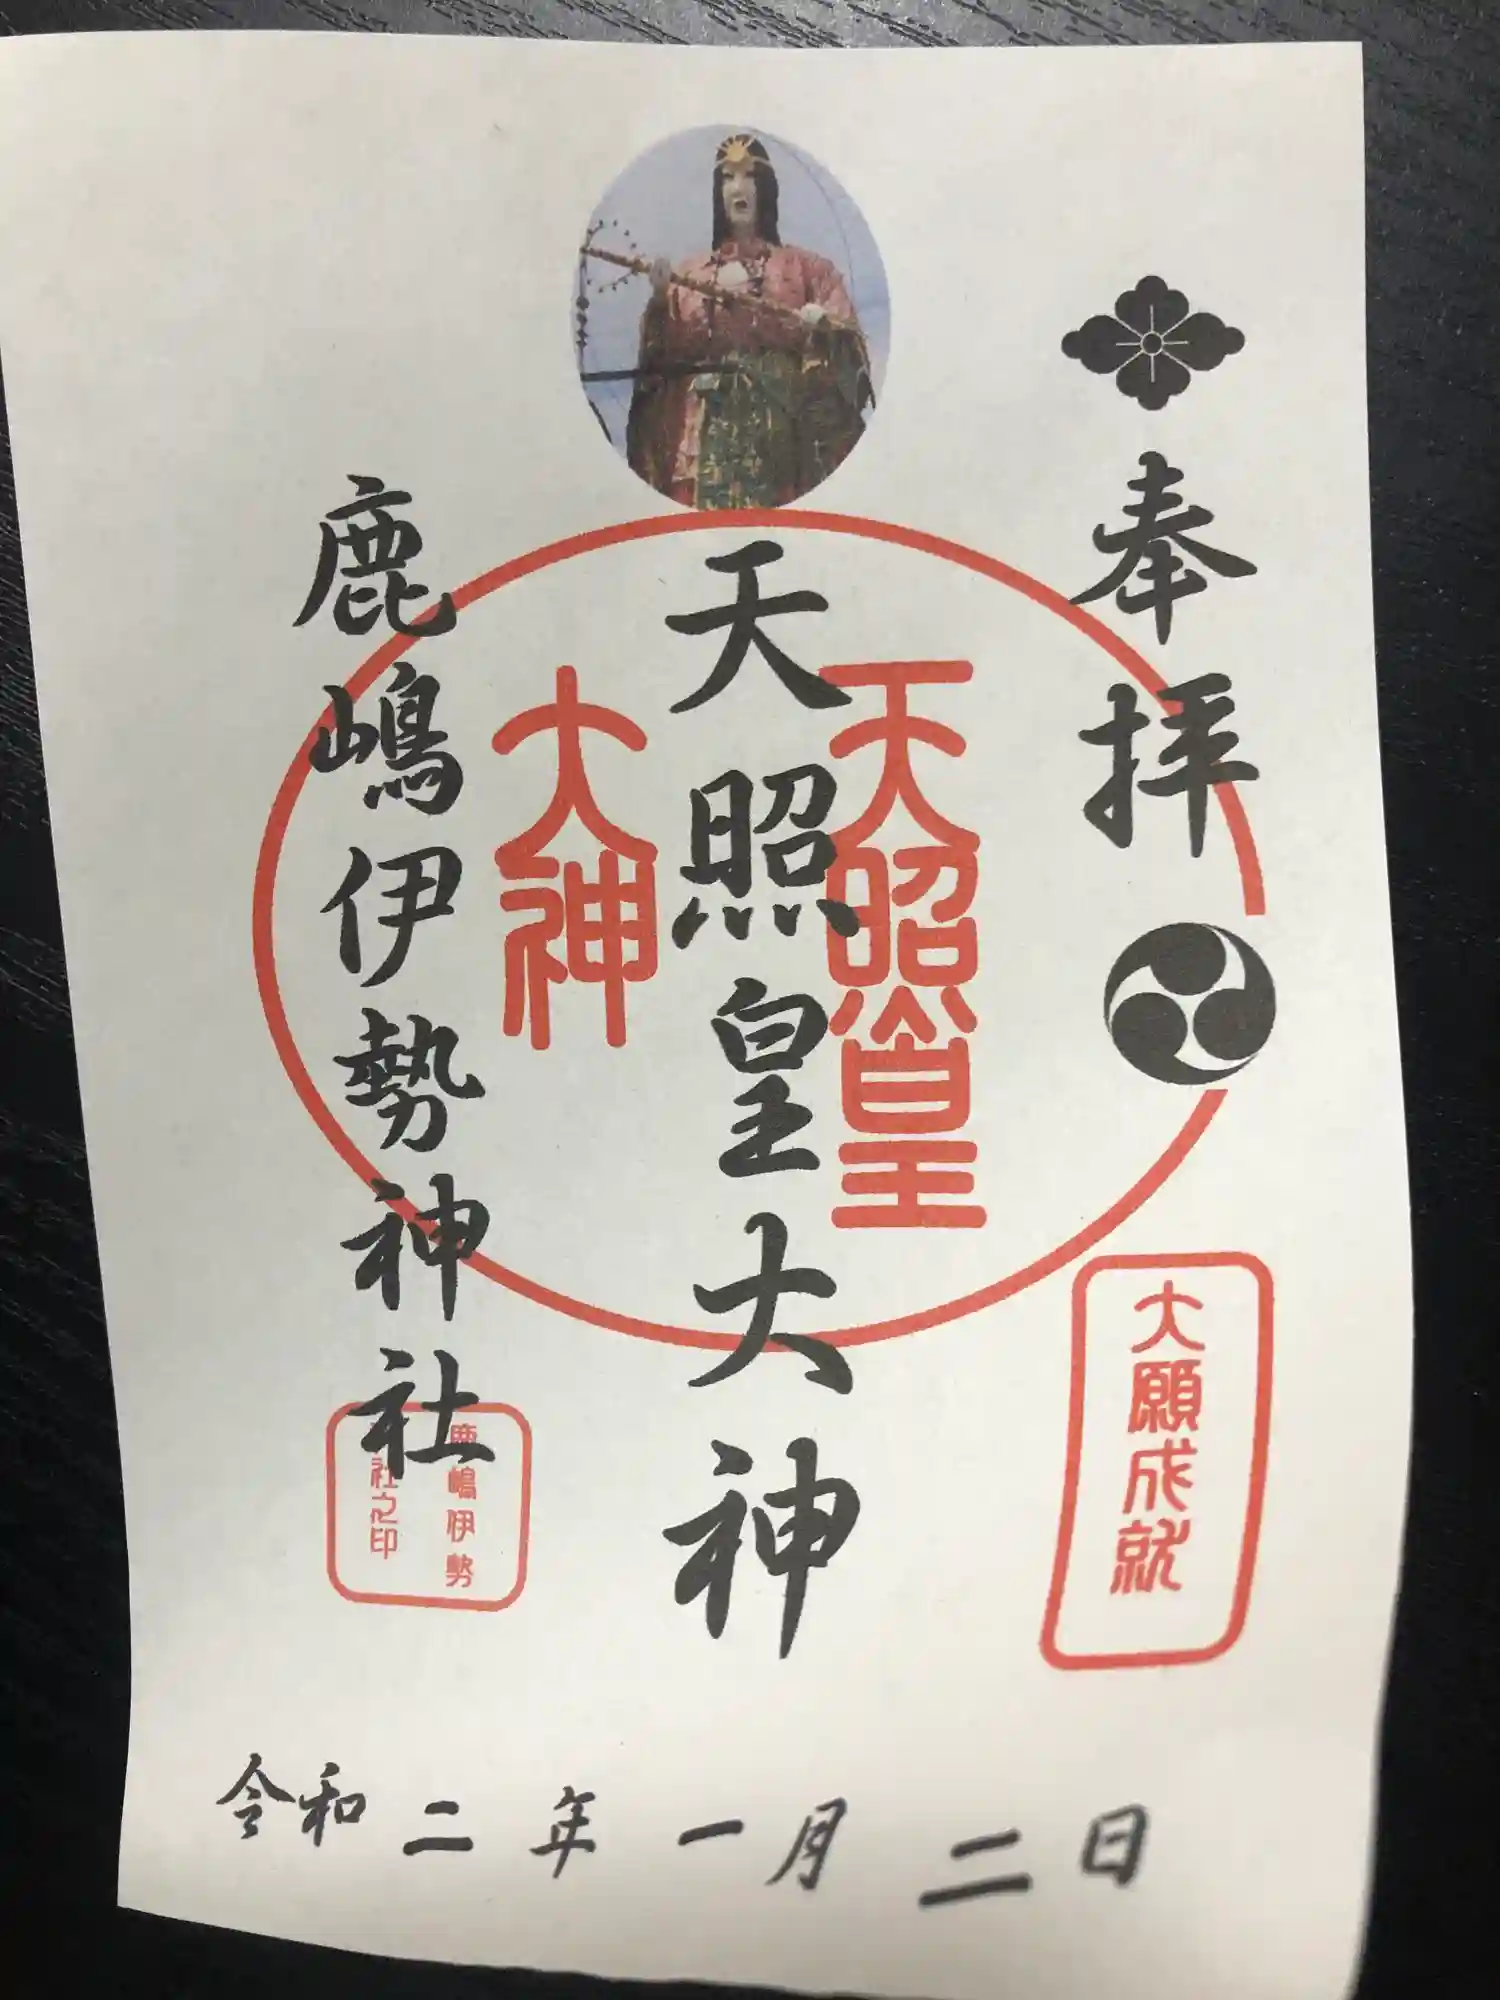 奉拝
天照皇
大神
天照皇大神
大願成就
鹿嶋伊勢神社
鹿嶋伊勢
社之印
令和二年一月二日